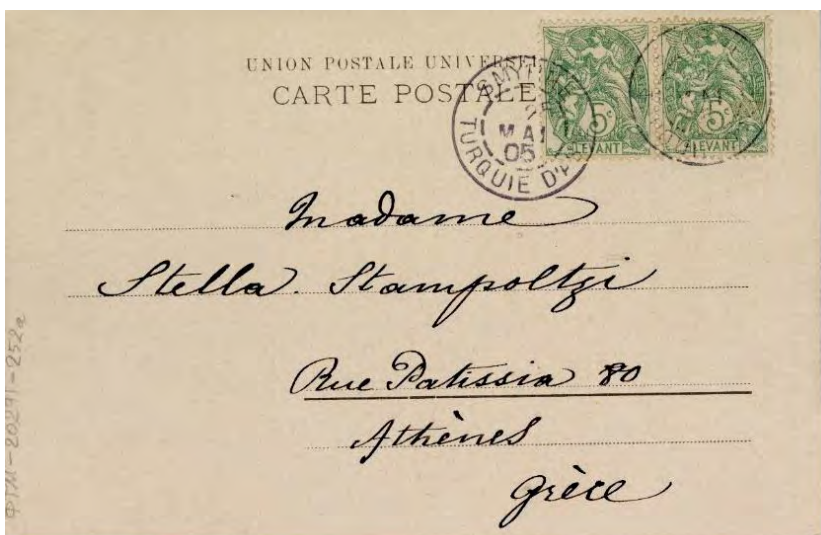 UNION POSTALE UNIVERSEL
CARTE POSTALE
SMY
MAI
05
TURQUIE D'A
5c
LEVANT
5c
LEVANT
Madame
Stella. Stampoltzi
Rue Patissia 80
Athènes
Grèce
ΦΤΜ-20271-252a